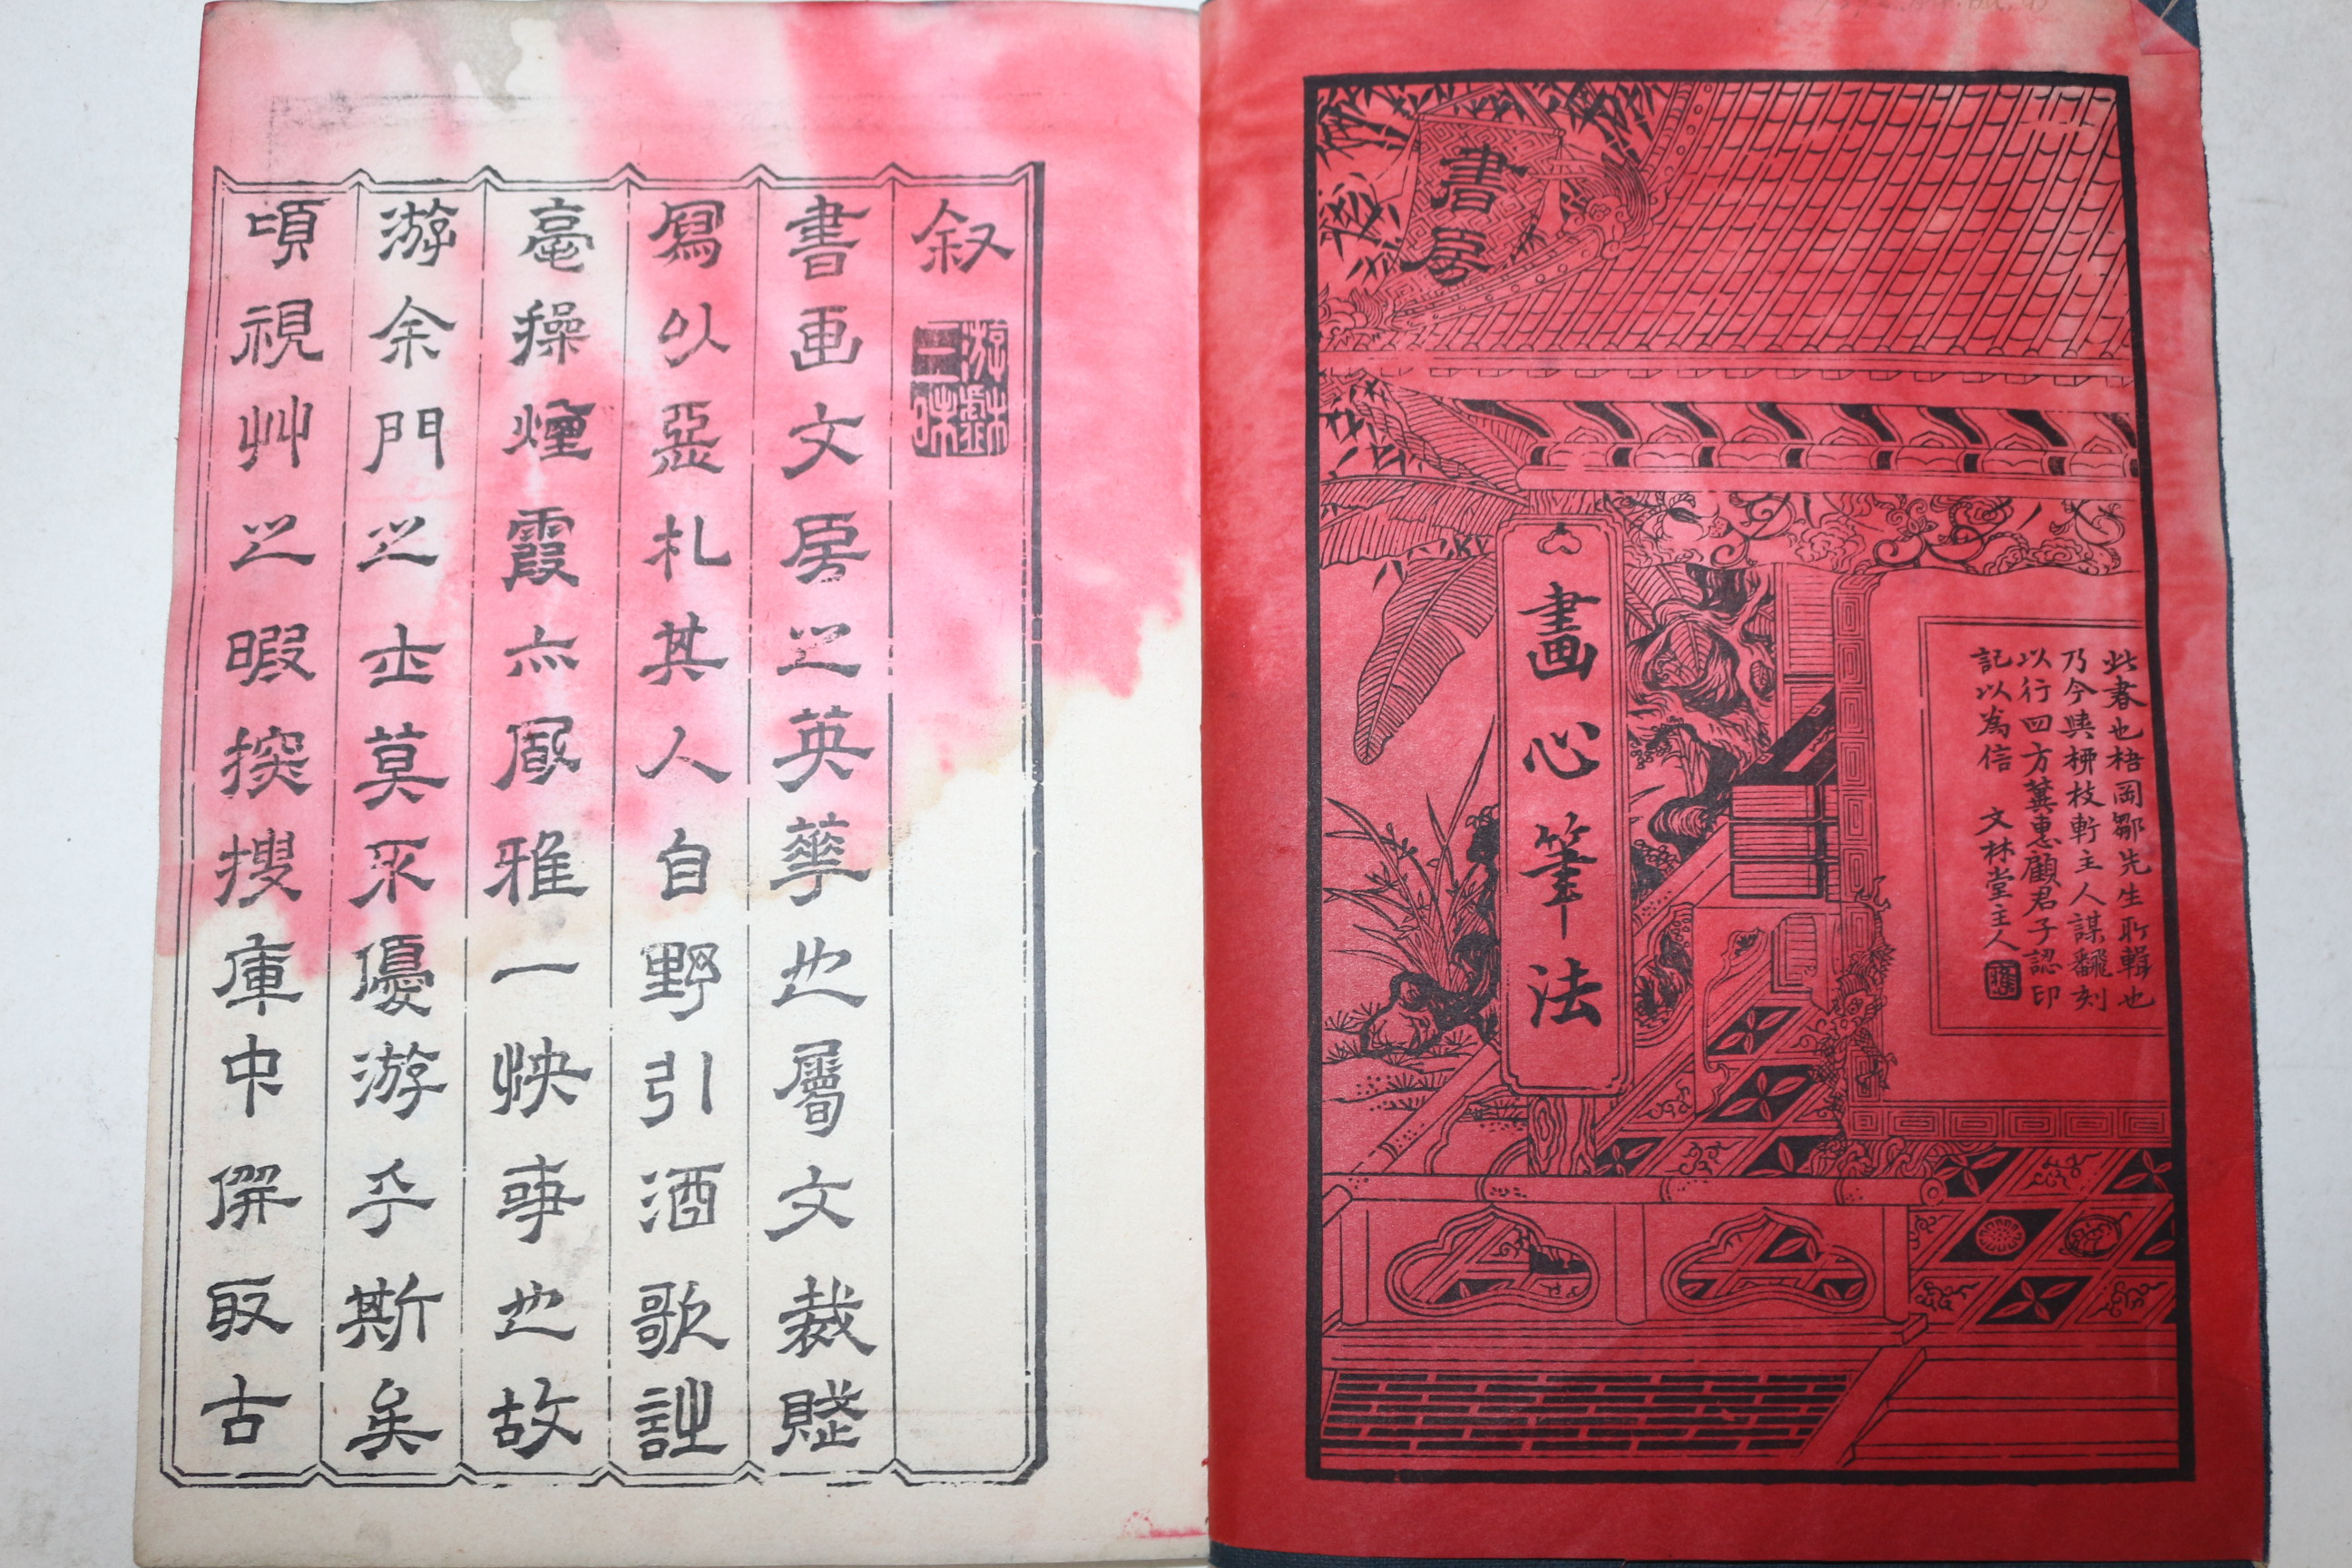 書房
畫心筆法
此書也梧岡鄒先生所輯也
乃今與栁枝軒主人謀飜刻
以行四方冀惠顧君子認印
記以為信　文林堂主人
叙
游戲三昧
書画文房之英華也層文裁賤
寫以惡札其人自野引酒歌詿
毫操煙霞亦風雅一快事也故
游余門之士莫不優游乎斯矣
頃視艸之暇探搜庫中併取古